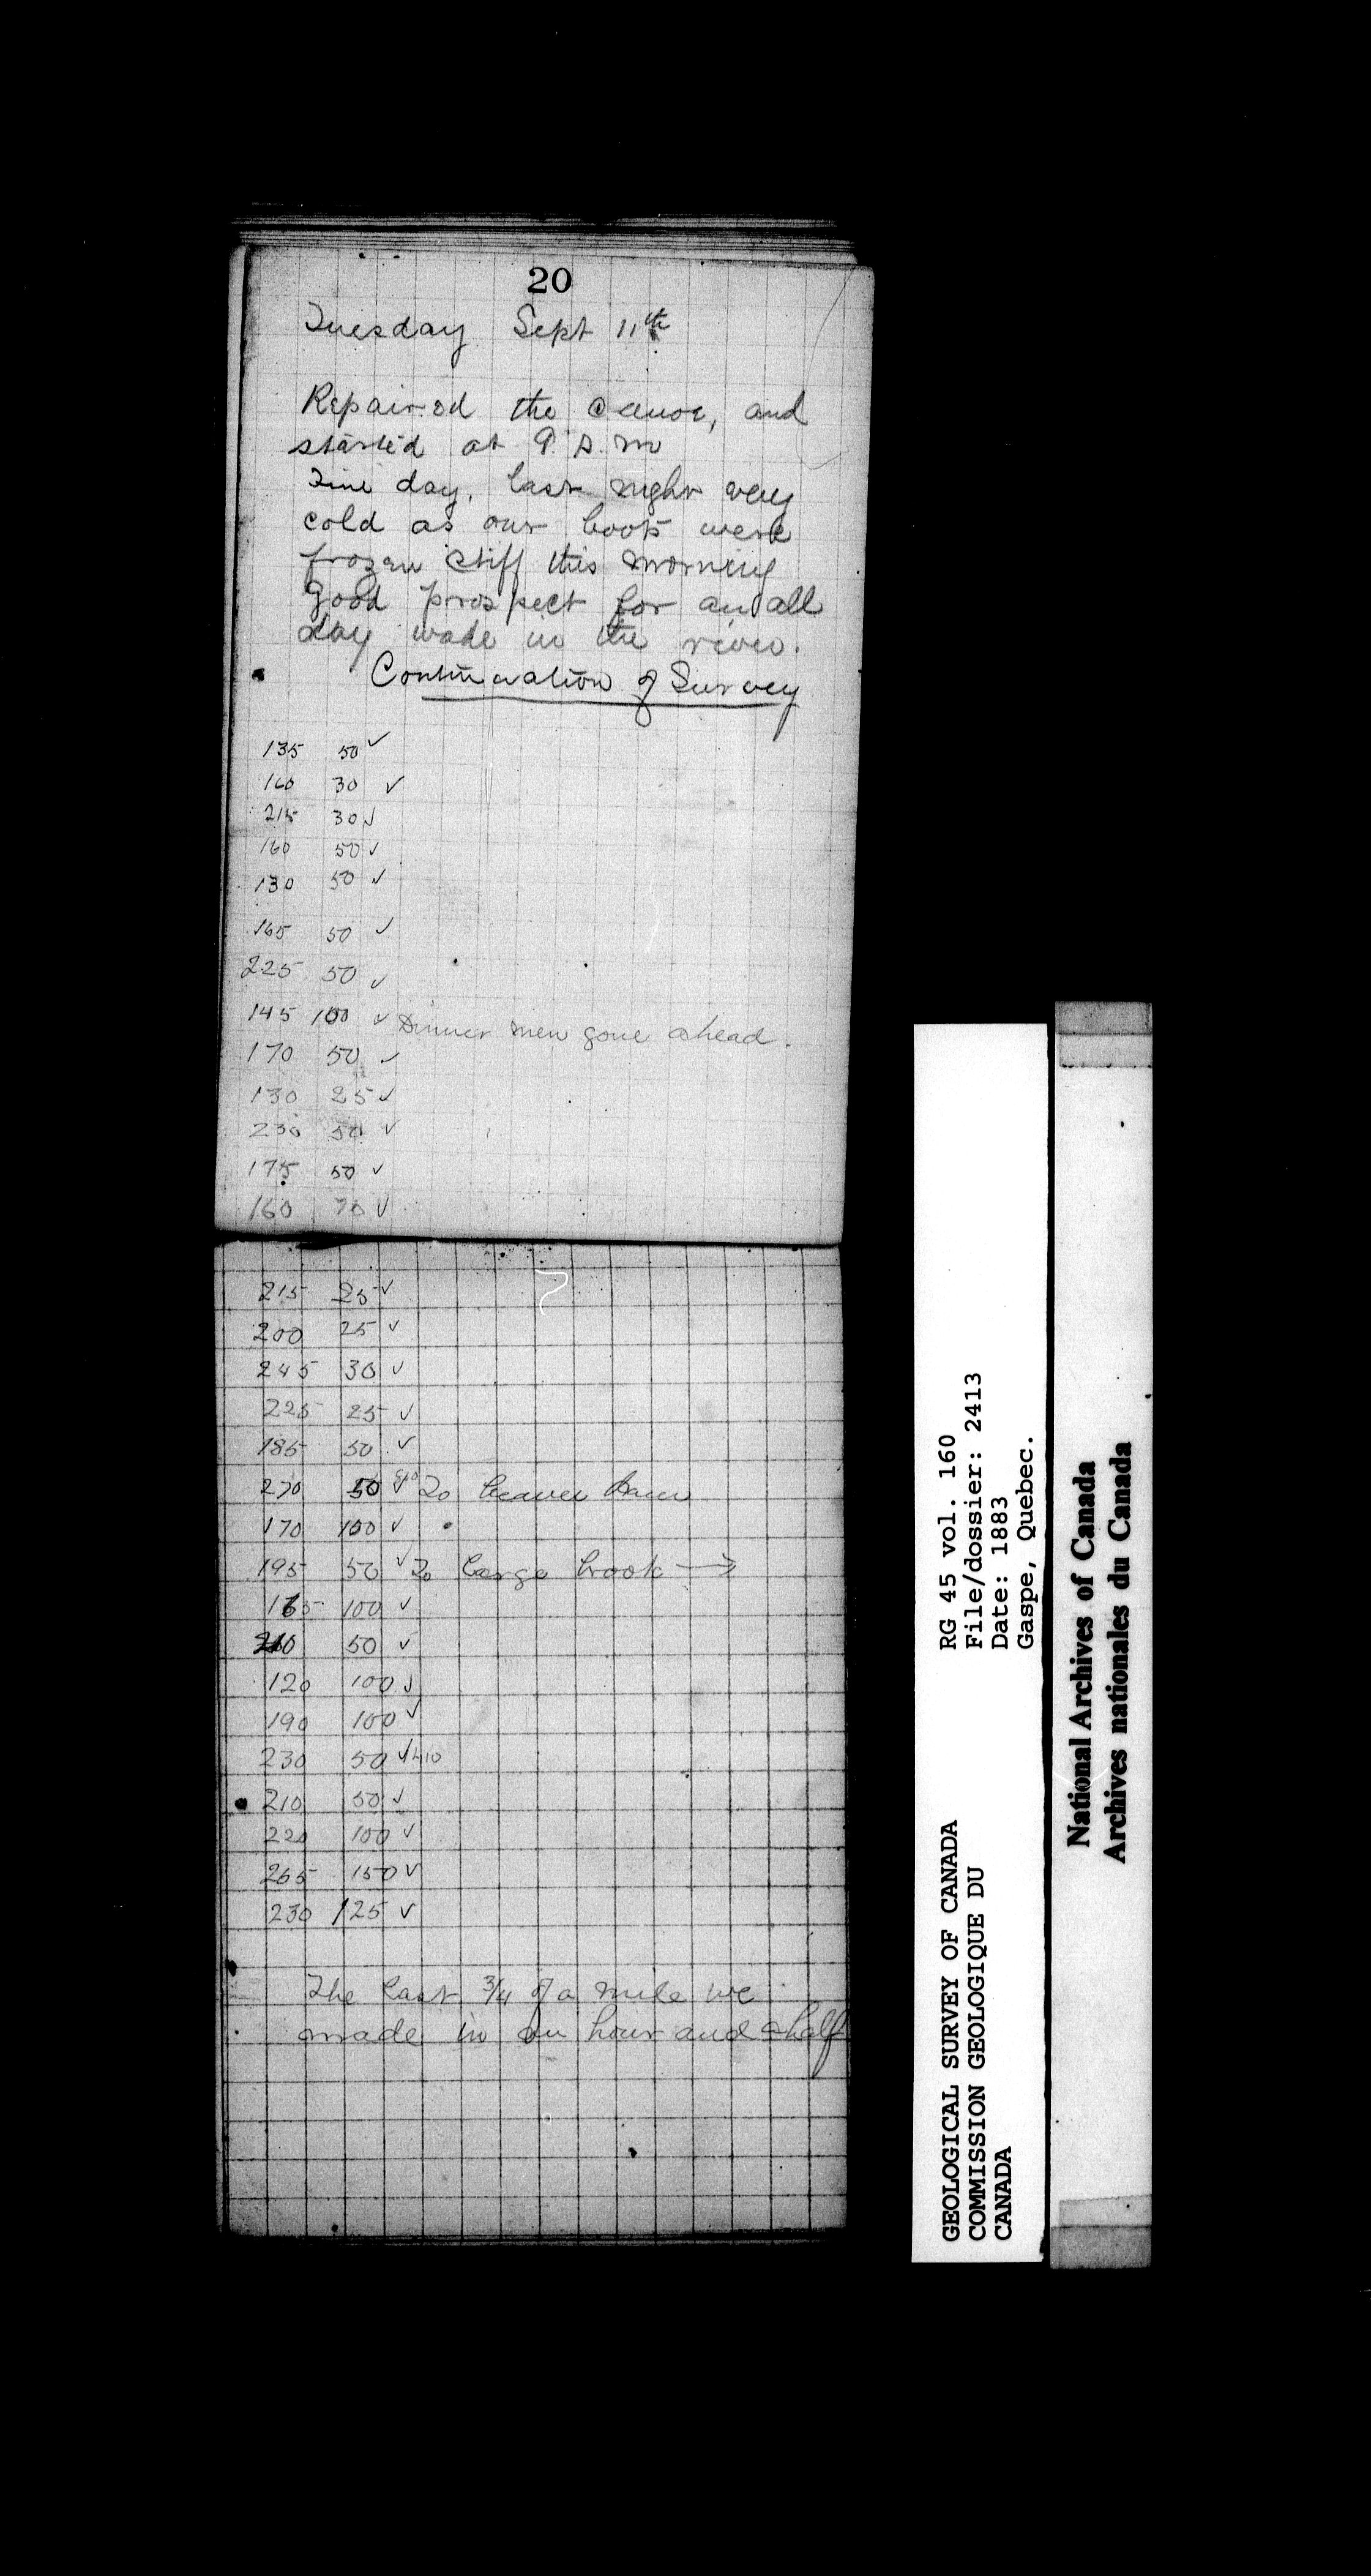 20
Tuesday Sept 11th
Repaired the canoe, and
started at 9. A. M
Fine day, last night very
cold as our boots were
frozen stiff this morning
Good prospect for an all
day wade in the river.
Continuation of Survey
135 50 ✓
160 30 ✓
215 30 ✓
160 50 ✓
130 50 ✓
165 50 ✓
225 50 ✓
145 100 ✓ Dinner men gone ahead.
170 50 ✓
130 25 ✓
230 50 ✓
175 50 ✓
160 70 ✓
215 25 ✓
200 25 ✓
245 30 ✓
225 25 ✓
185 50 ✓
270 50 ✓ To beaver dam
170 100 ✓
195 50 ✓ To large brook →
165 100 ✓
210 50 ✓
120 100 ✓
190 100 ✓
230 50 ✓
210 50 ✓
220 100 ✓
265 150 ✓
230 125 ✓
The last 3/4 of a mile we
made in an hour and a half
GEOLOGICAL SURVEY OF CANADA
COMMISSION GEOLOGIQUE DU
CANADA
RG 45 vol. 160
File/dossier: 2413
Date: 1883
Gaspe, Quebec.
National Archives of Canada
Archives nationales du Canada